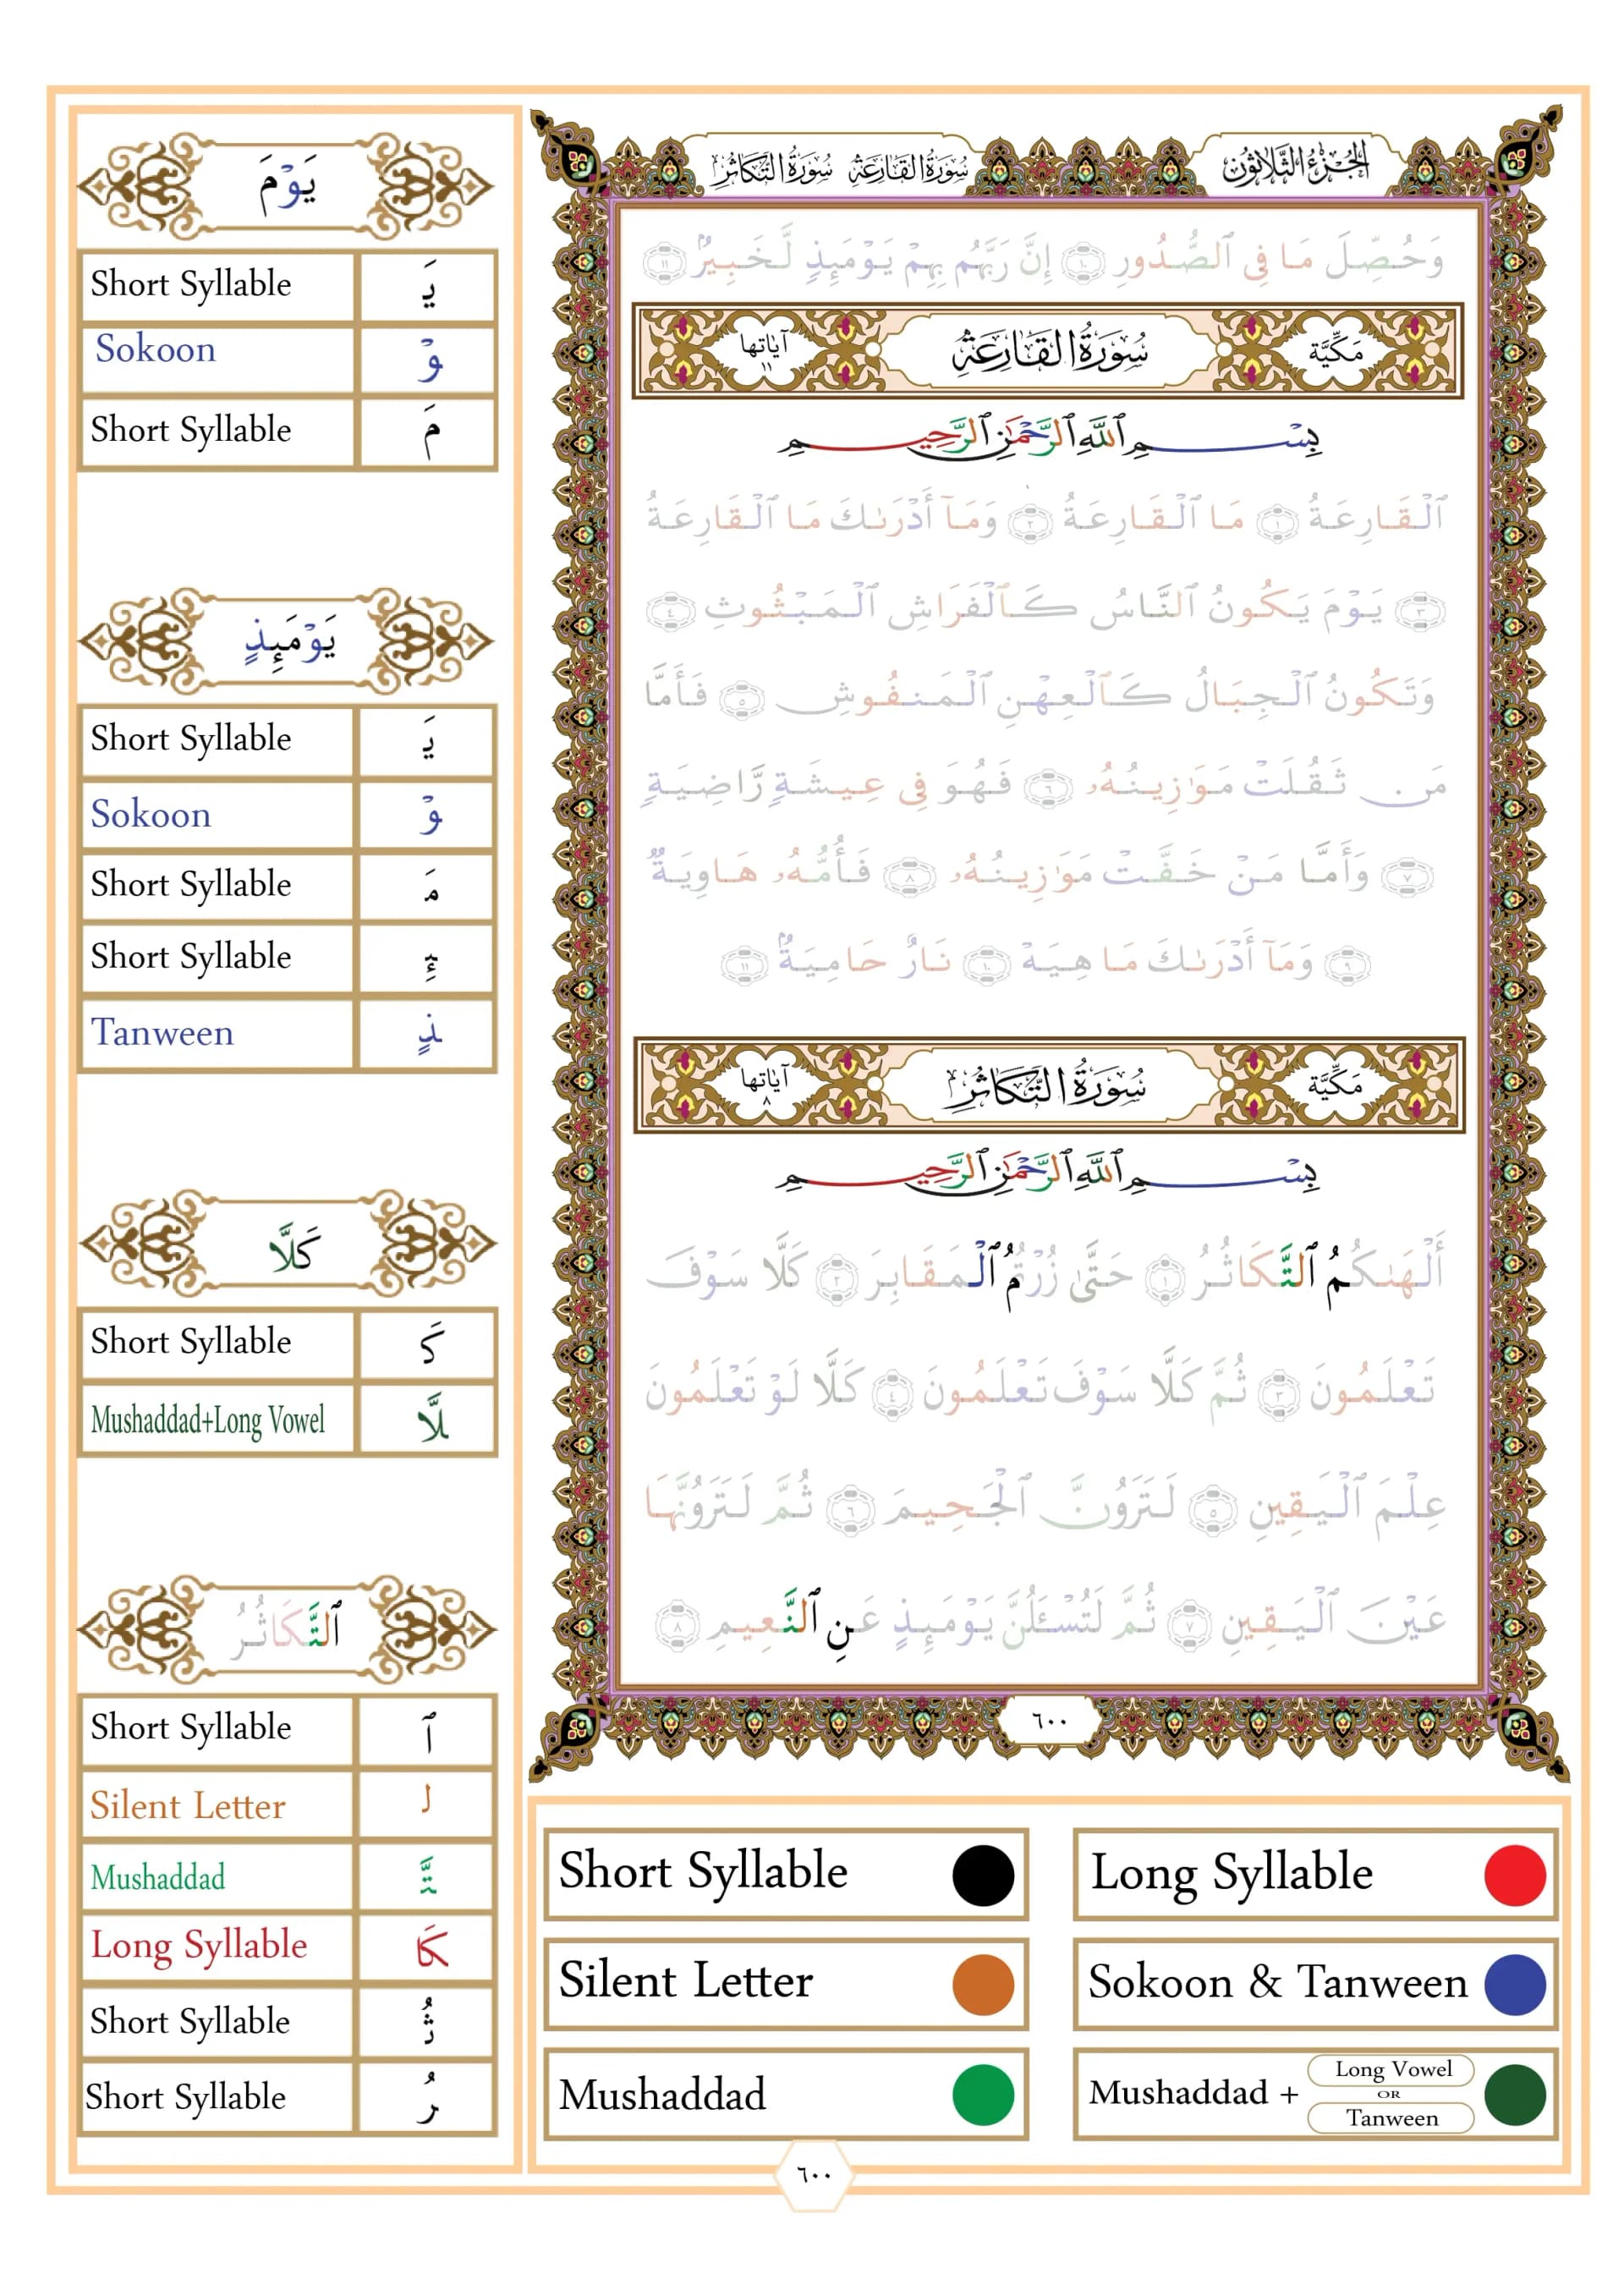 يَوْمَ
Short Syllable يَـ
Sokoon ـوْ
Short Syllable مَ
يَوْمَئِذٍ
Short Syllable يَـ
Sokoon ـوْ
Short Syllable مَـ
Short Syllable ـئِـ
Tanween ـذٍ
كَلَّا
Short Syllable كَـ
Mushaddad+Long Vowel ـلَّا
ٱلتَّكَاثُرُ
Short Syllable ٱ
Silent Letter لـ
Mushaddad ـتَّـ
Long Syllable كَا
Short Syllable ثُـ
Short Syllable ـرُ
الجُزْءُ الثَّلَاثُون سُورَةُ القَارِعَةِ سُورَةُ التَّكَاثُرِ
وَحُصِّلَ مَا فِى ٱلصُّدُورِ ١٠ إِنَّ رَبَّهُم بِهِمْ يَوْمَئِذٍ لَّخَبِيرٌۢ ١١
مَكِّيَّة سُورَةُ القَارِعَةِ آيَاتها ١١
بِسْمِ ٱللَّهِ ٱلرَّحْمَٰنِ ٱلرَّحِيمِ
ٱلْقَارِعَةُ ١ مَا ٱلْقَارِعَةُ ٢ وَمَآ أَدْرَىٰكَ مَا ٱلْقَارِعَةُ
٣ يَوْمَ يَكُونُ ٱلنَّاسُ كَٱلْفَرَاشِ ٱلْمَبْثُوثِ ٤
وَتَكُونُ ٱلْجِبَالُ كَٱلْعِهْنِ ٱلْمَنفُوشِ ٥ فَأَمَّا
مَن ثَقُلَتْ مَوَٰزِينُهُۥ ٦ فَهُوَ فِى عِيشَةٍ رَّاضِيَةٍ
٧ وَأَمَّا مَنْ خَفَّتْ مَوَٰزِينُهُۥ ٨ فَأُمُّهُۥ هَاوِيَةٌ
٩ وَمَآ أَدْرَىٰكَ مَا هِيَهْ ١٠ نَارٌ حَامِيَةٌۢ ١١
مَكِّيَّة سُورَةُ التَّكَاثُرِ آيَاتها ٨
بِسْمِ ٱللَّهِ ٱلرَّحْمَٰنِ ٱلرَّحِيمِ
أَلْهَىٰكُمُ ٱلتَّكَاثُرُ ١ حَتَّىٰ زُرْتُمُ ٱلْمَقَابِرَ ٢ كَلَّا سَوْفَ
تَعْلَمُونَ ٣ ثُمَّ كَلَّا سَوْفَ تَعْلَمُونَ ٤ كَلَّا لَوْ تَعْلَمُونَ
عِلْمَ ٱلْيَقِينِ ٥ لَتَرَوُنَّ ٱلْجَحِيمَ ٦ ثُمَّ لَتَرَوُنَّهَا
عَيْنَ ٱلْيَقِينِ ٧ ثُمَّ لَتُسْـَٔلُنَّ يَوْمَئِذٍ عَنِ ٱلنَّعِيمِ ٨
٦٠٠
Short Syllable Long Syllable
Silent Letter Sokoon & Tanween
Mushaddad Mushaddad + Long Vowel OR Tanween
٦٠٠